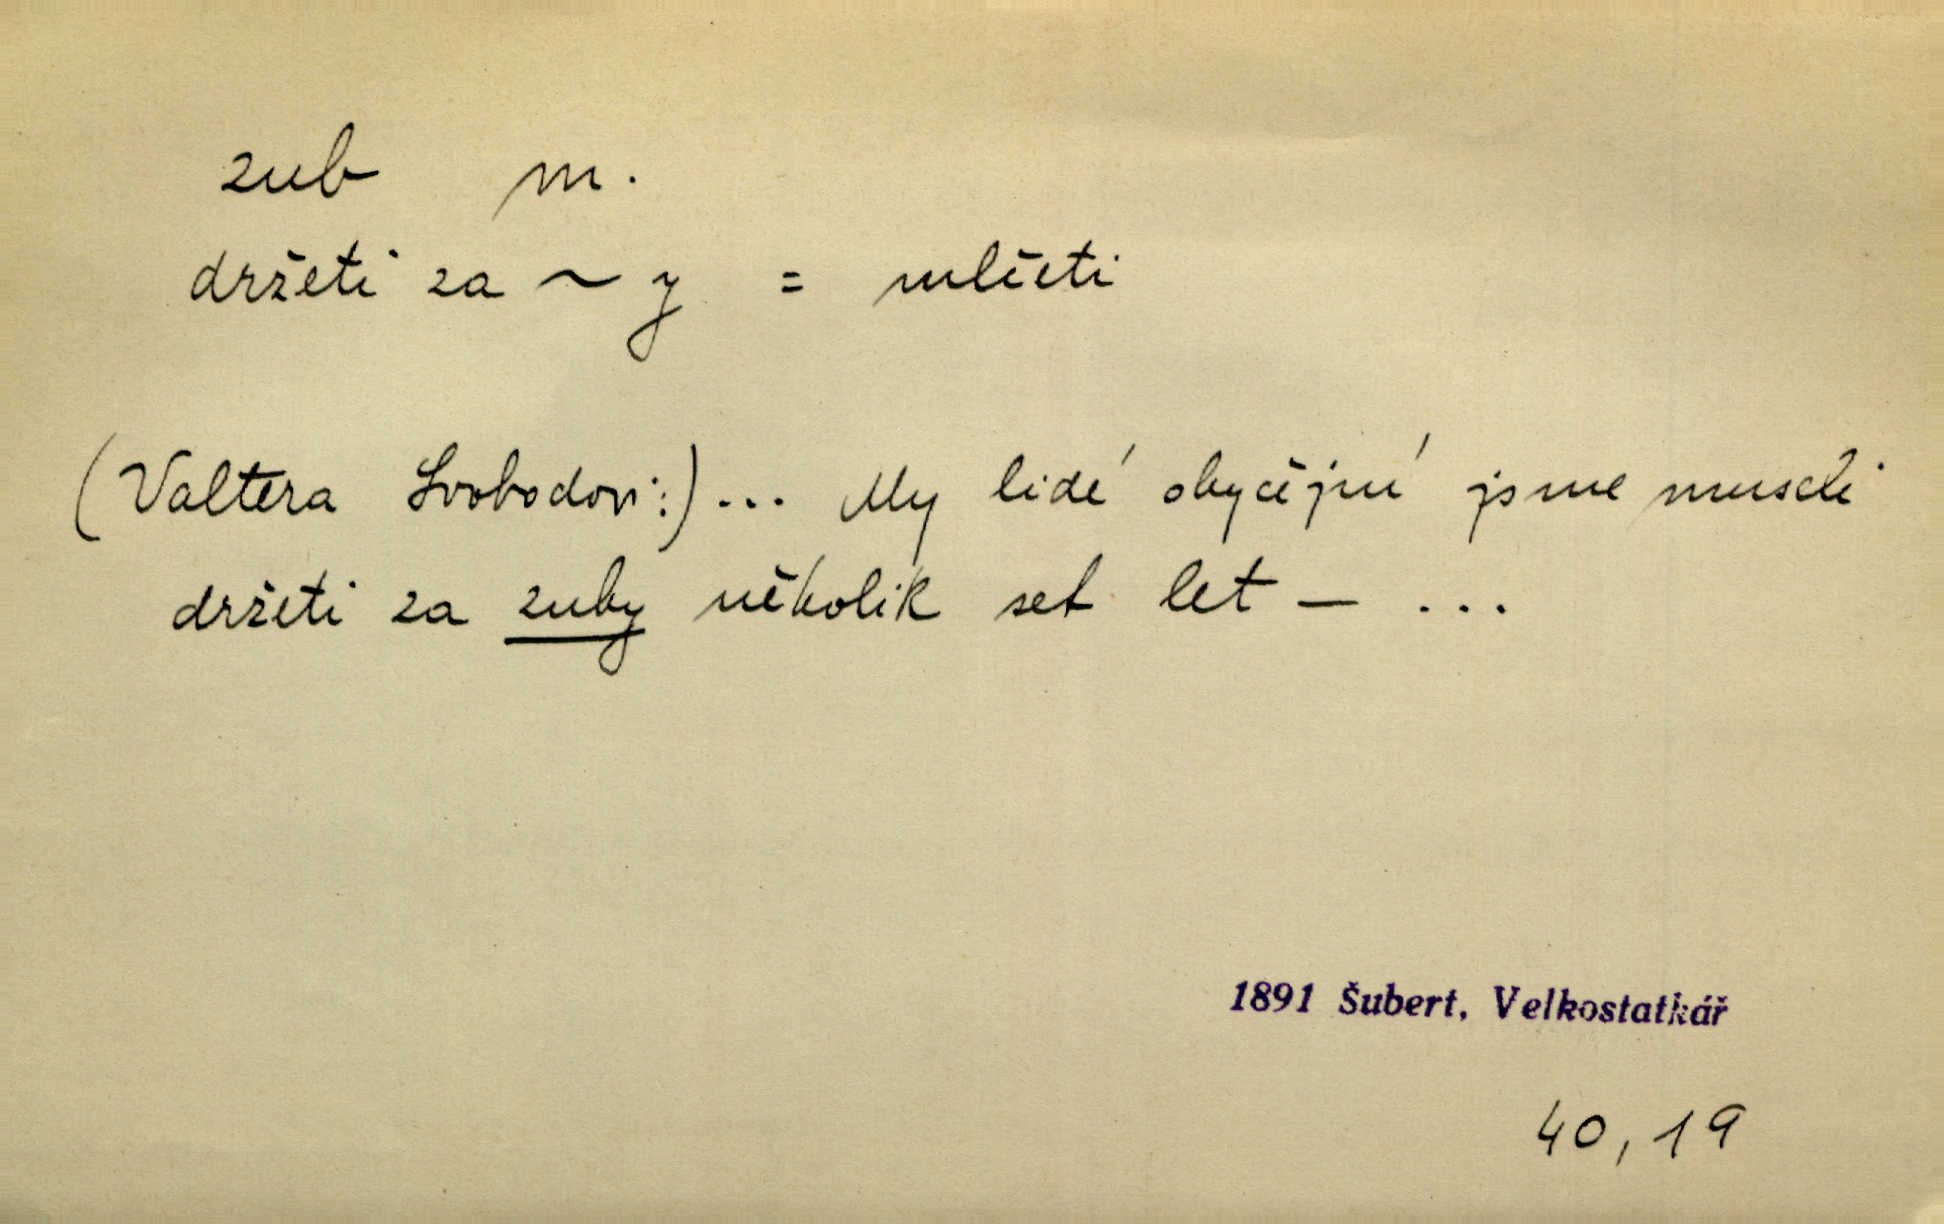 zub m.
držeti za ~ y = mlčeti
(Valtera Svobodovi:) ... My lidé obyčejní jsme museli
držeti za zuby několik set let – ...
1891 Šubert, Velkostatkář
40, 19